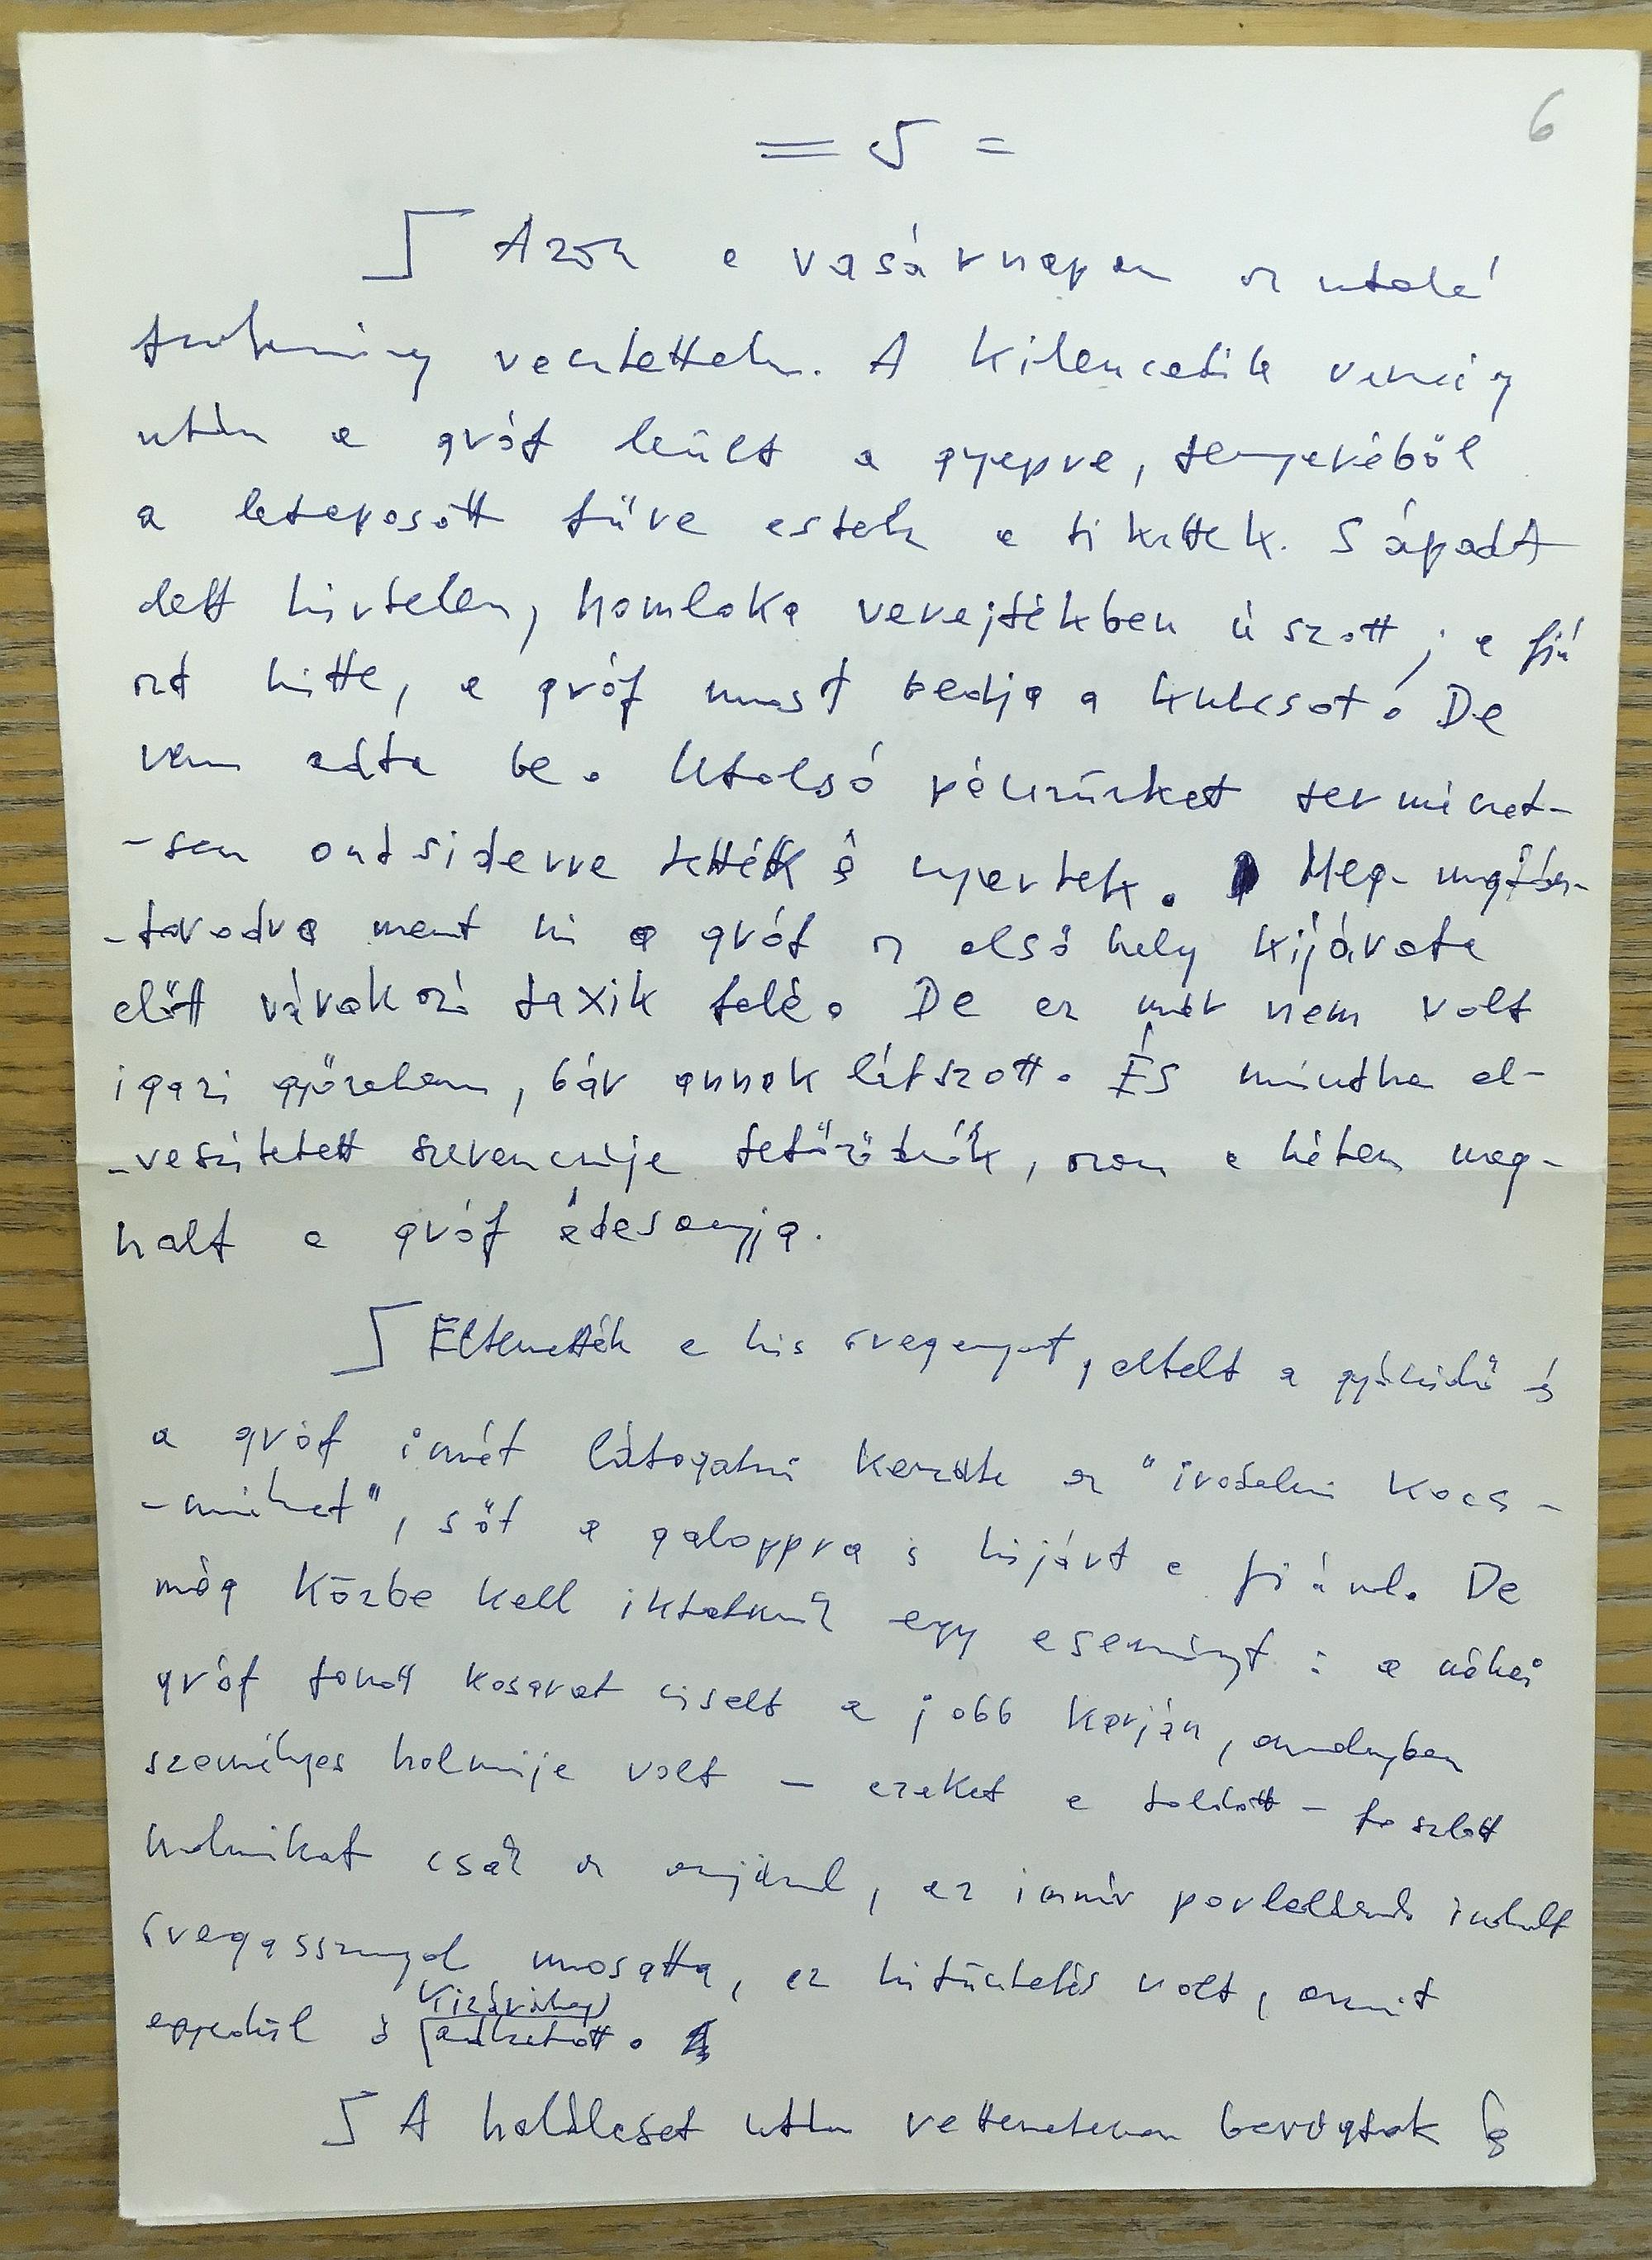 6
= 5 =
Azon a vasárnapon az utolsó
futamig vesztettek. A kilencedik verseny
után a gróf leült a gyepre, tenyeréből
a letaposott fűre estek a tikettek. Sápadt
lett hirtelen, homloka verejtékben úszott, a fiú
azt hitte, a gróf most bedja a kulcsot. De
nem adta be. Utolsó pénzünket természet-
-sen outsiderre tették s nyertek. Meg-
-torodva ment ki a gróf az első hely kijárata
előtt várakozó taxik felé. De ez már nem volt
igazi győzelem, bár annak látszott. És mintha el-
-veszített szerencséje, azon a héten meg-
halt a gróf édesanyja.
Eltemették a kis öreganyót, eltelt a gyászidő és
a gróf ismét látogatni kezdte az "irodalmi kocs-
-mákat", sőt a galoppra is kijárt a fiúval. De
még közbe kell iktatni egy eseményt: a néhai
gróf fonott kosarat viselt a jobb karján, amelyben
személyes holmija volt – ezeket a toldott-foszlott
holmikat csak az anyjával, az immár porladásnak indult
öregasszonnyal mosatta, ez kitüntetés volt, amit
egyedül ő kizárólag érdemelt.
A haláleset után rettenetesen berúgtak s